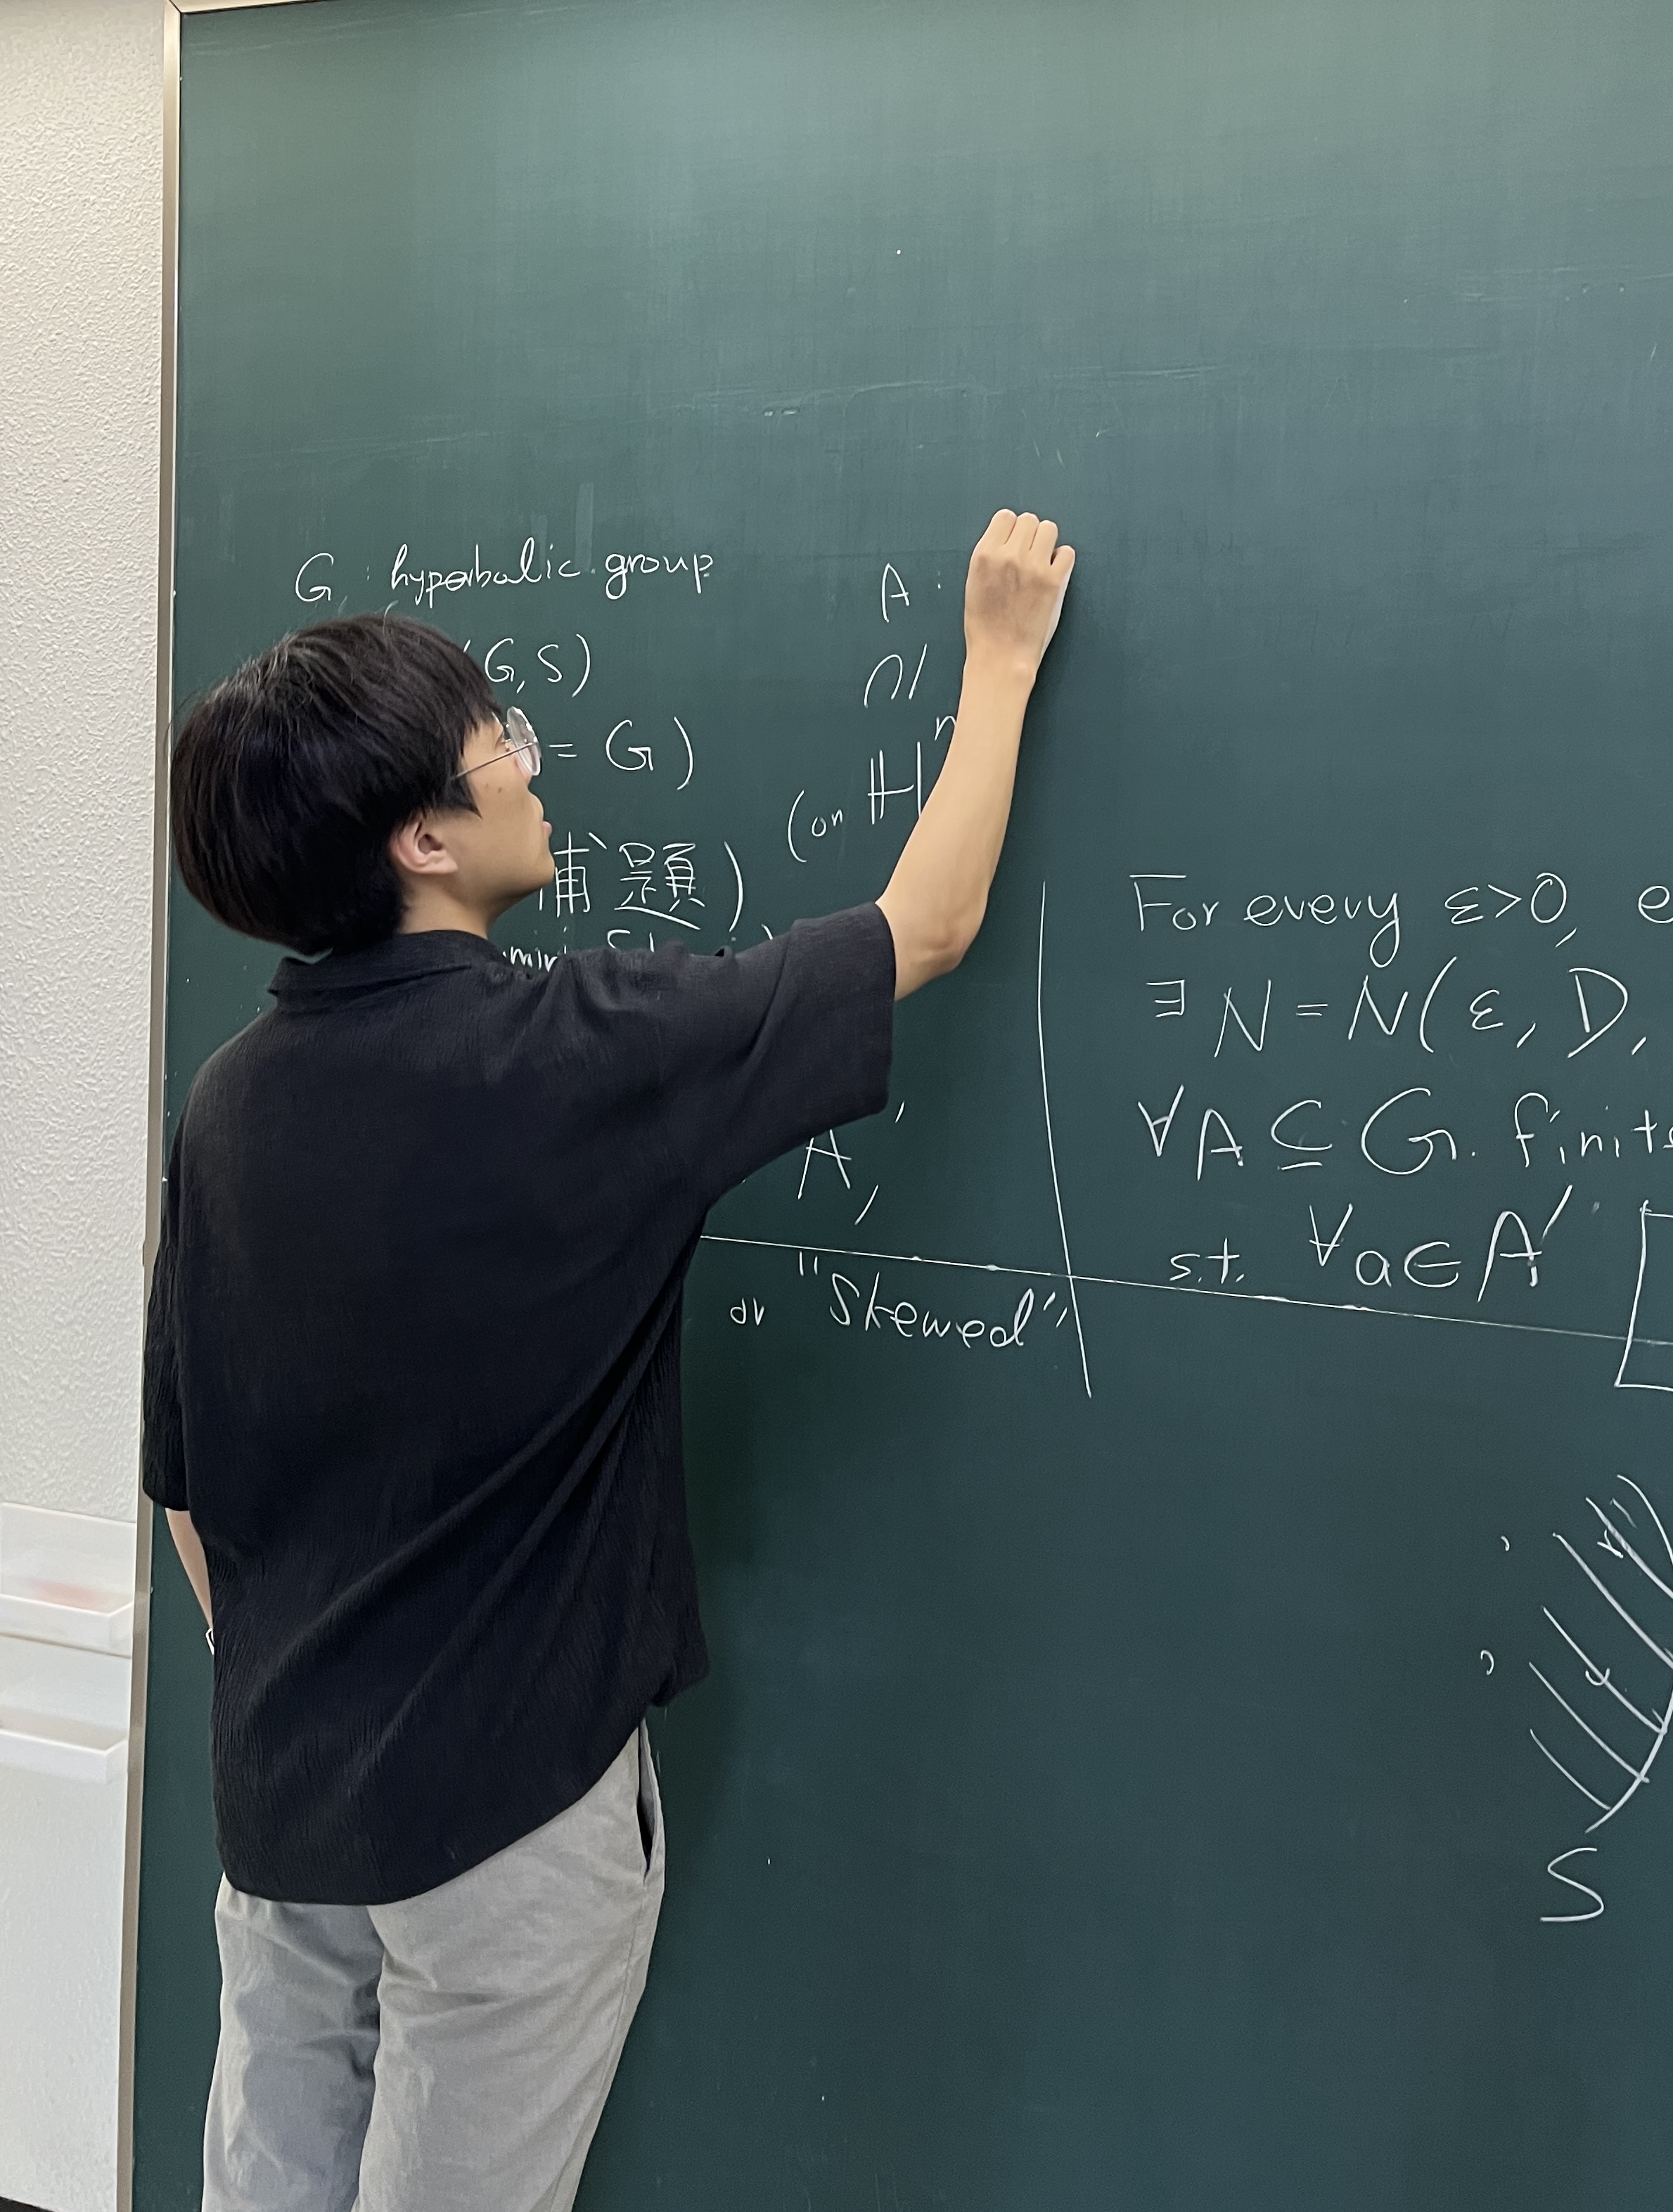 G : hyperbolic group
G, S)
= G )
補題)
A :
∩|
(on ℍⁿ
A',
or "Skewed",
For every ε>0,
∃ N = N( ε, D,
∀A ⊆ G. finite
s.t. ∀a ∈ A'
S